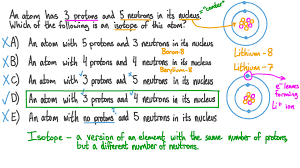 An atom has 3 protons and 5 neutrons in its nucleus. "center"
Which of the following is an isotope of this atom?
A) An atom with 5 protons and 3 neutrons in its nucleus
Boron-8
B) An atom with 4 protons and 4 neutrons in its nucleus
Beryllium-8
C) An atom with 3 protons and 5 neutrons in its nucleus
D) An atom with 3 protons and 4 neutrons in its nucleus
E) An atom with no protons and 5 neutrons in its nucleus
Lithium-8
Lithium-7
e⁻ leaves
forming
Li⁺ ion
Isotope - a version of an element with the same number of protons,
but a different number of neutrons.